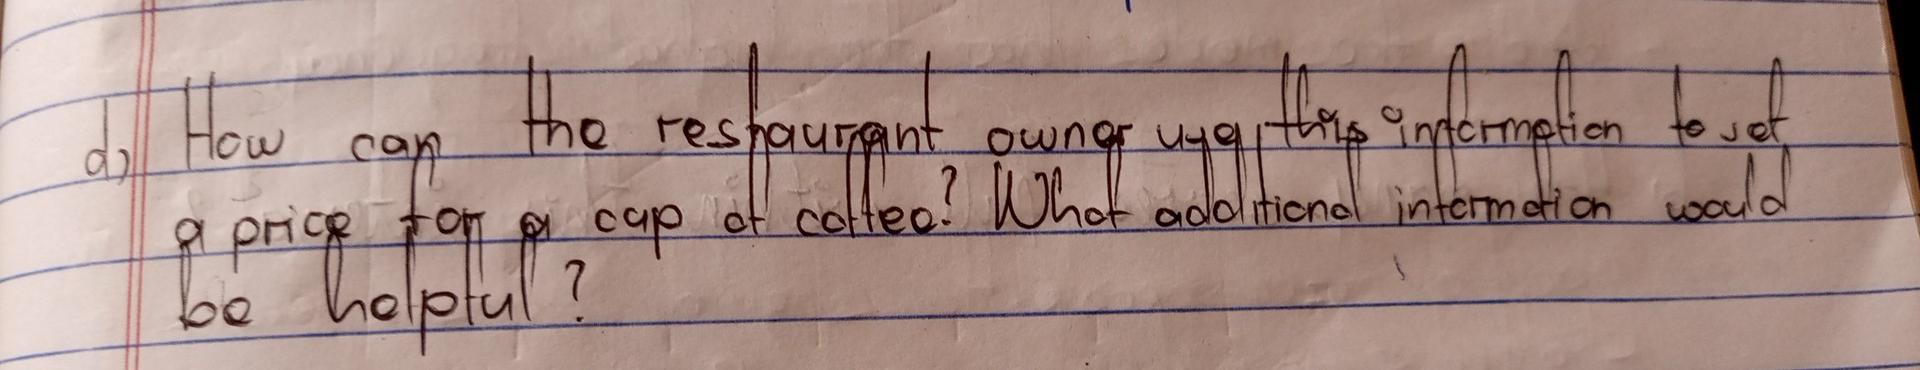 d) How can the restaurant owner use this information to set
a price for a cup of coffee? What additional information would
be helpful?